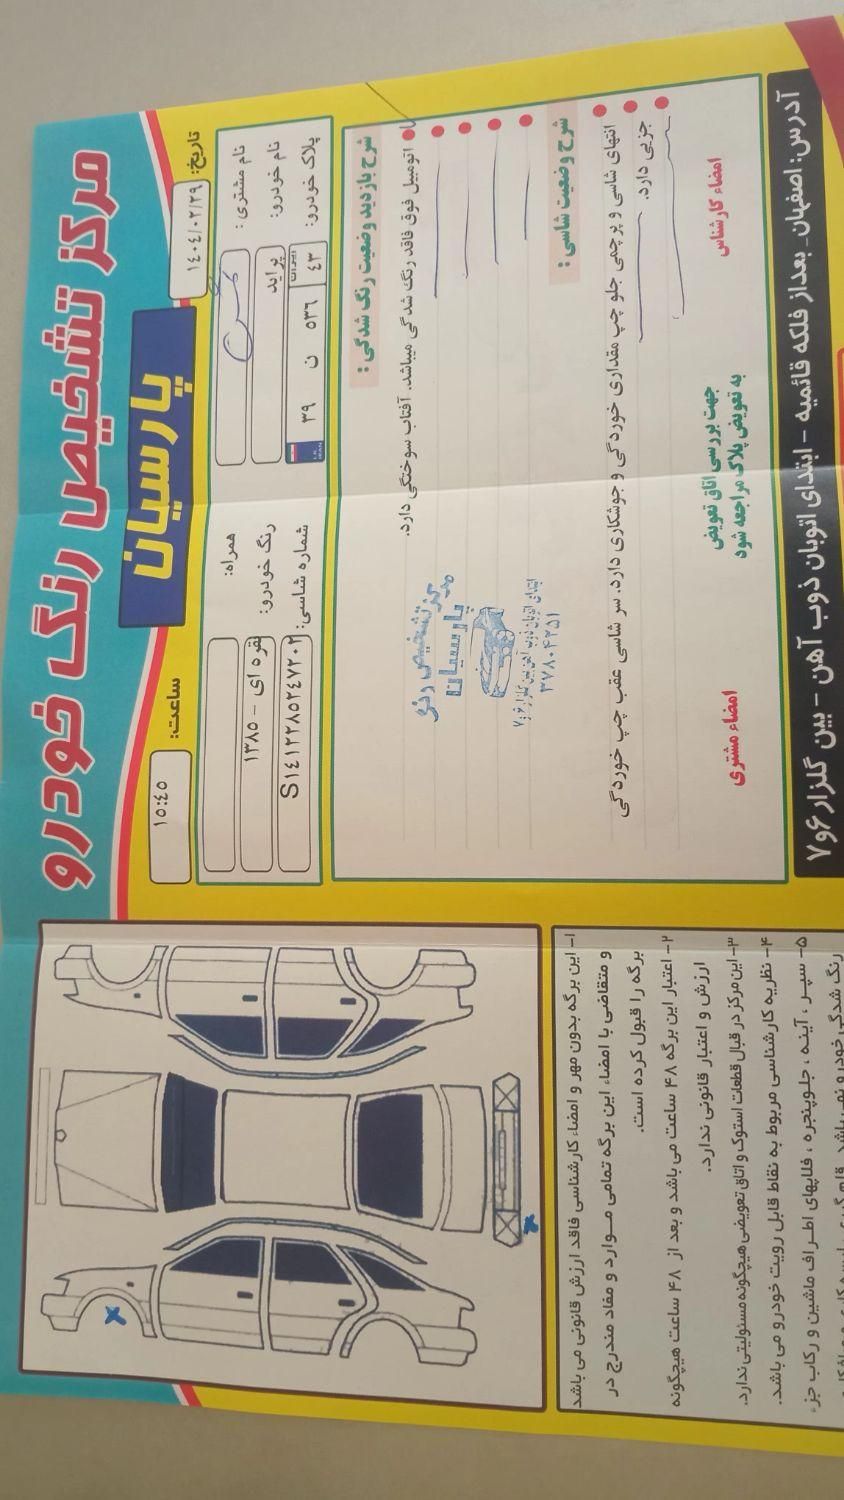 مرکز تشخیص رنگ خودرو
پارسیان
تاریخ: ۱۴۰۴/۰۲/۲۹
ساعت: ۱۵:۴۵
نام مشتری:
همراه:
نام خودرو: پراید
رنگ خودرو: نقره ای - ۱۳۸۵
پلاک خودرو: ایران ۴۳ ۵۳۶ ن ۳۹
شماره شاسی: S۱۴۱۲۲۸۵۲۴۷۲۰۲
شرح بازدید وضعیت رنگ شدگی:
اتومبیل فوق فاقد رنگ شدگی میباشد. آفتاب سوختگی دارد.
مرکز تشخیص رنگ
پارسیان
ابتدای اتوبان ذوب آهن بین گلزار ۶ و ۷
۳۷۸۰۴۲۵۱
شرح وضعیت شاسی:
انتهای شاسی و پرچمی جلو چپ مقداری خوردگی و جوشکاری دارد. سر شاسی عقب چپ خوردگی
جزیی دارد.
امضاء کارشناس
جهت بررسی اتاق تعویض
به تعویض پلاک مراجعه شود
امضاء مشتری
آدرس: اصفهان_ بعداز فلکه قائمیه - ابتدای اتوبان ذوب آهن - بین گلزار ۶و۷
۱- این برگه بدون مهر و امضاء کارشناسی فاقد ارزش قانونی می باشد
و متقاضی با امضاء این برگه تمامی مـوارد و مفاد مندرج در
برگه را قبول کرده است.
۲- اعتبار این برگه ۴۸ ساعت می باشد و بعد از ۴۸ ساعت هیچگونه
ارزش و اعتبار قانونی ندارد.
۳- این مرکز در قبال قطعات استوک و اتاق تعویضی هیچگونه مسئولیتی ندارد.
۴- نظریه کارشناسی مربوط به نقاط قابل رویت خودرو می باشد.
۵- سپـر ، آینـه ، جلـوپنجره ، فلاپهای اطـراف ماشین و رکاب جزء
رنگ شدگی خودرو نمی باشد.